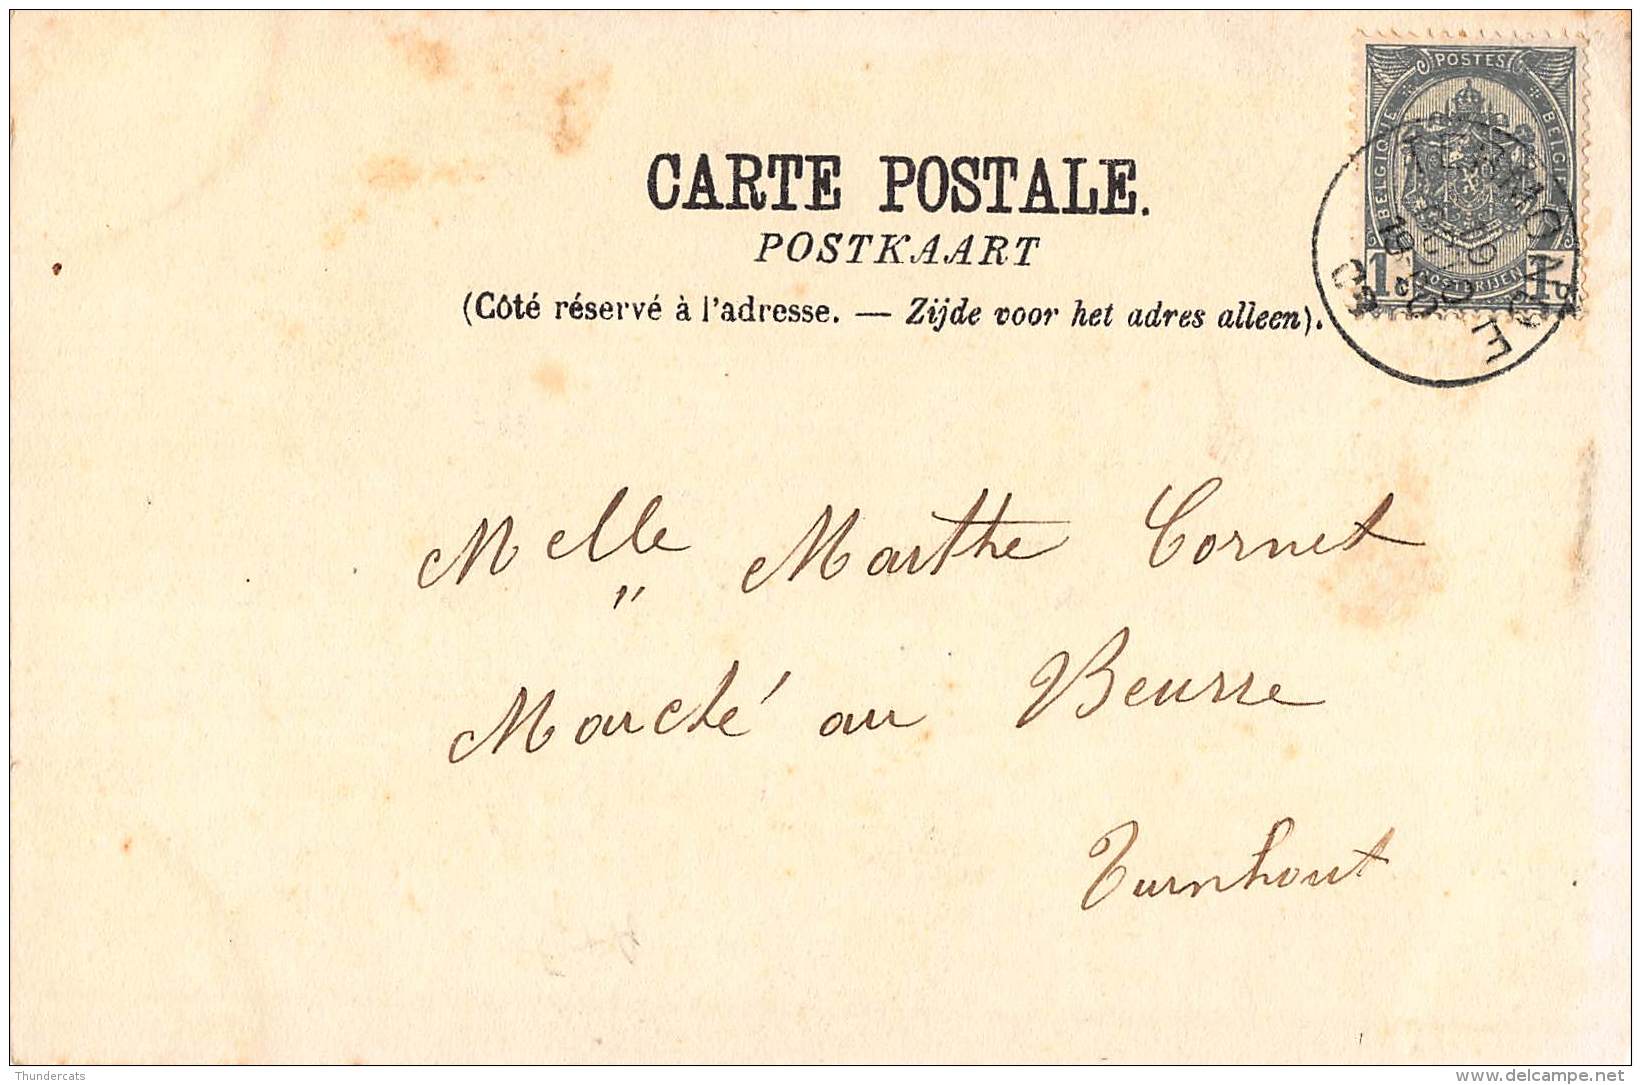 POSTES
BELGIQUE
BELGIE
POSTERIJEN
TERMONDE
CARTE POSTALE.
POSTKAART
(Côté réservé à l'adresse. — Zijde voor het adres alleen).
Melle Marthe Cornet
Marché au Beurre
Turnhout
Thundercats
delcampe.net